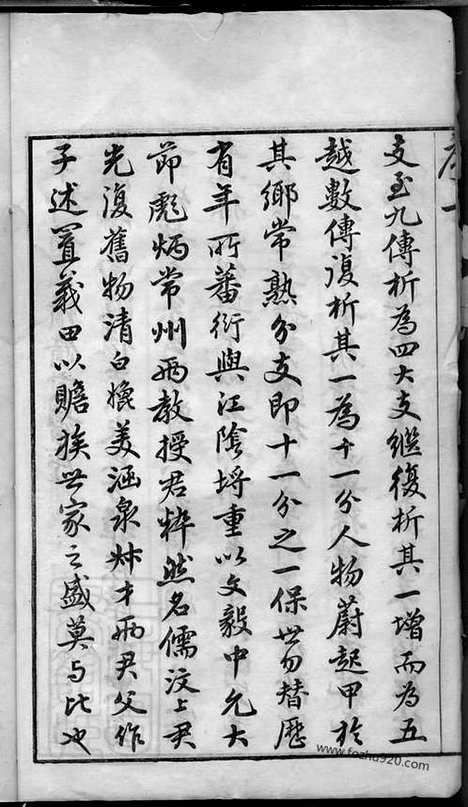 序一
支至九傳析為四大支繼復析其一增而為五
越數傳復析其一為十一分人物蔚起甲於
其鄉常熟分支即十一分之一保世勿替歷
有年所蕃衍與江陰埒重以文毅中允大
節彪炳常州兩教授君粹然名儒汶上君
光復舊物清白媲美涵泉 才兩君父作
子述置義田以贍族世家之盛莫与比也
www.fozhu920.com